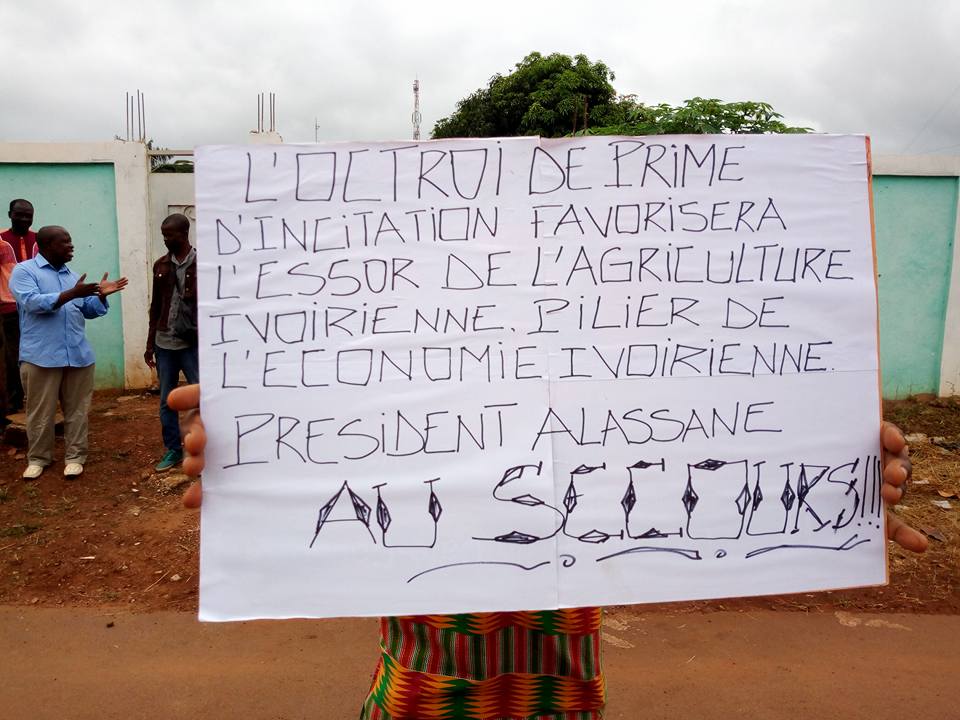 L'OCTROI DE PRIME
D'INCITATION FAVORISERA
L'ESSOR DE L'AGRICULTURE
IVOIRIENNE. PILIER DE
L'ECONOMIE IVOIRIENNE.
PRESIDENT ALASSANE
AU SECOURS!!!